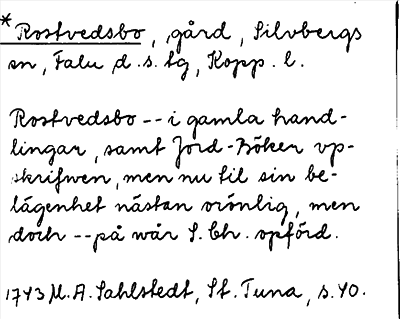 * Rostvedsbo, gård, Silvbergs
sn, Falu d.s. tg, Kopp. l.
Rostvedsbo -- i gamla hand-
lingar, samt Jord-Böker vp-
skrifwen, men nu til sin be-
lägenhet nästan orönlig, men
doch -- på wår S. Ch. vpförd.
1743 U. A. Sahlstedt, St. Tuna, s. 40.